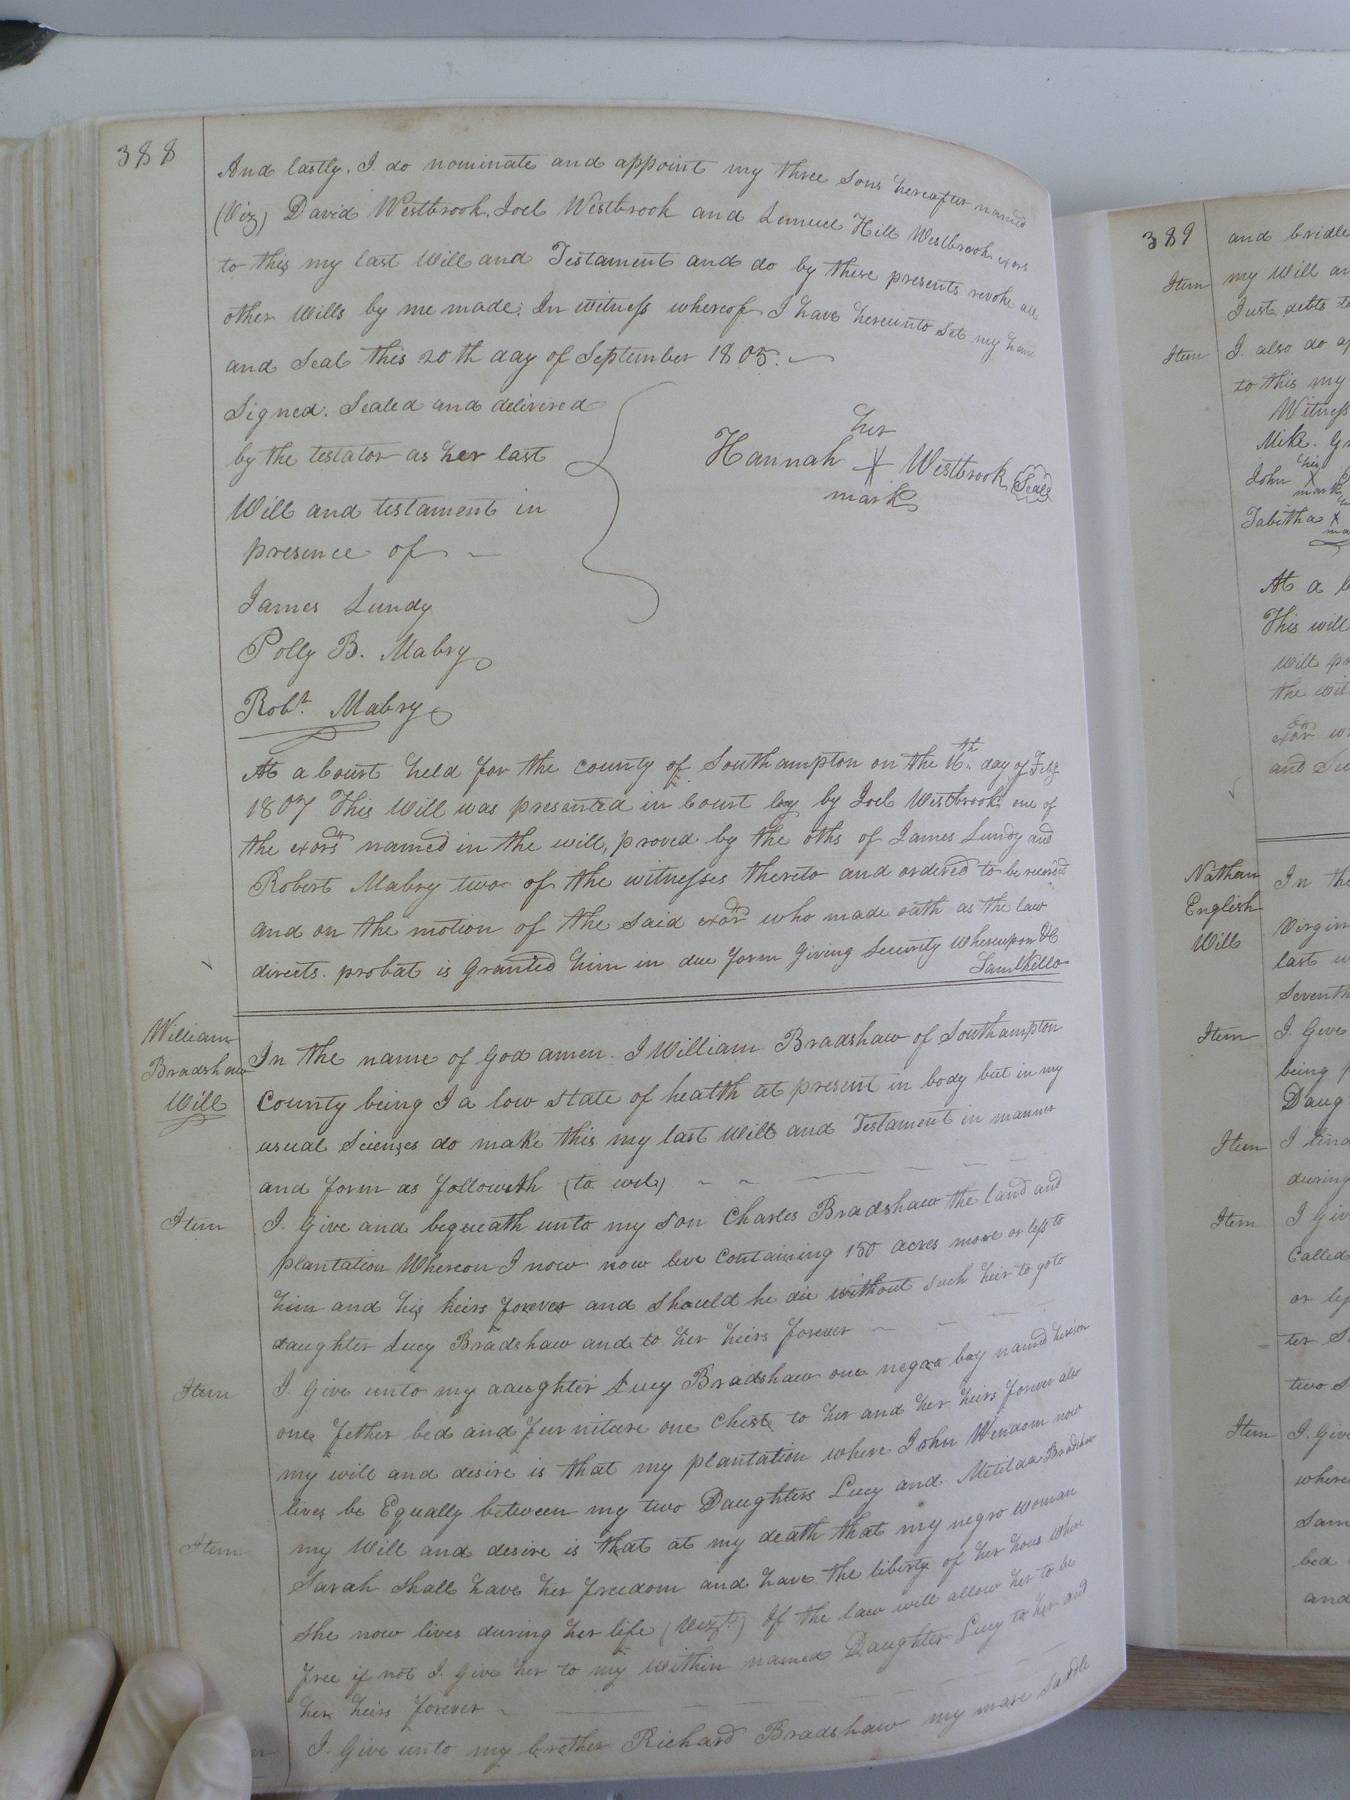 388
And lastly, I do nominate and appoint my three Sons hereafter named
(Viz) David Westbrook, Joel Westbrook and Lemuel Hill Westbrook exors
to this my last Will and Testament and do by these presents revoke all
other Wills by me made; In witness whereof I have hereunto Set my hand
and Seal this 20th day of September 1805.
Signed. Sealed and delivered
by the testator as her last
Will and testament in
presence of
her
Hannah X Westbrook Seal
mark
James Lundy
Polly B. Mabry
Robt. Mabry
At a Court held for the county of Southampton on the 16th day of
1807 This Will was presented in Court by Joel Westbrook one of
the exors named in the will, proved by the oths of James Lundy and
Robert Mabry two of the witnesses thereto and ordered to be recorded
and on the motion of the said exor who made oath as the law
directs. probat is Granted him in due form Giving Security Whereupon &C
Saml Kello
William
Bradshaw
Will
In the name of God amen. I William Bradshaw of Southampton
County being I a low state of health at present in body but in my
usual Scienses do make this my last Will and Testament in manner
and form as followeth (to wit)
Item I Give and beqeueath unto my son Charles Bradshaw the land and
plantation Whereon I now now live Containing 150 acres more or less to
him and his heirs forever and should he die without such heir to go to
daughter Lucy Bradshaw and to her heirs forever
Item I Give unto my daughter Lucy Bradshaw one negro boy named
one fether bed and furniture one Chest to her and her heirs forever also
my will and desire is that my plantation where John now
lives be Equally between my two Daughters Lucy and Metilda Bradshaw
Item my Will and desire is that at my death that my negro woman
Sarah shall have her freedom and have the liberty of her hous where
she now lives during her life If the law will allow her to be
free if not I Give her to my within named Daughter Lucy to her and
her heirs forever
I Give unto my brother Richard Bradshaw my mare Saddle
389
and bridle
Item my Will
Just debts
Item I also do
to this my
Witness
Mike.
his
John X
mark
Tabitha X
At a
This will
will
the
and
Nathan
English
Will
In the
last
Item I Give
being
Daug
Item I
during
Item I Give
Called
or
two
Item I Give
where
bed
and